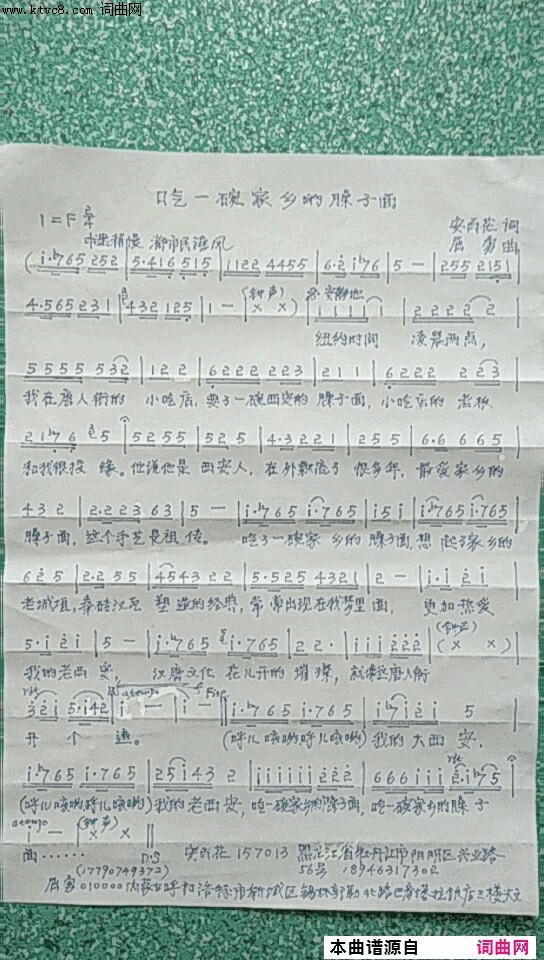 www.ktvc8.com 词曲网
吃一碗家乡的臊子面
1=F 2/4
安西花 词
屈家 曲
中速稍慢 都市民谣风
(i·♭765 252 | 5·416 515 | 1122 4455 | 6·2 i♭76 | 5 — | 255 2151 |
4·565 231 | 432 125 | 1 — | (钟声) x x) | 安静地 1111 1 | 2222 2 |
纽约时间 凌晨两点,
55555 532 | 122 | 6222 223 | 211 | 6222 223 |
我在唐人街的 小吃店, 要了一碗西安的 臊子面, 小吃店的 老板
2176 5 | 5255 | 525 | 4·3221 | 255 | 6·6 665 |
和我很投 缘。他说他是 西安人, 在外飘流了 很多年, 最爱家乡的
432 | 2·22363 | 5 — | i·♭765 i·765 | i5i | i·♭765 i·765 |
臊子面, 这个手艺是祖传。 吃了一碗家 乡的 臊子面, 想 起了家乡的
625 | 2·255 | 4543 22 | 5·525 4321 | 2 — | i·i2i |
老城垣, 秦砖汉瓦 塑造的经典, 常常出现在我梦里面, 更加热爱
5·i2i | 5 — | i·♭765 i·765 | 22· | iii 222 | (钟声) (x x) |
我的老西安, 汉唐文化 花儿开的 璀璨, 就像这唐人街
rit 32i 5·i42 | a tempo i — | i — Fine | i·♭765 i·765 | i7i2i 5 |
开 个 遍。 (呼儿咳哟呼儿咳哟) 我的大西安,
i·♭765 i·765 | 25i43 2 | iiiiii 222 | 666iii rit 2·i♭75 |
(呼儿咳哟呼儿咳哟) 我的老西安, 吃一碗家乡的臊子面, 吃一碗家乡的臊子
a tempo i — | (钟声) x x ||
面…… D.S
安西花 157013 黑龙江省牡丹江市阳明区兴业路
(17790749372) 56号 18946317302
屈家 010000 内蒙古呼和浩特市新城区锡林郭勒北路巴彦塔拉饭店三楼大立
本曲谱源自 词曲网